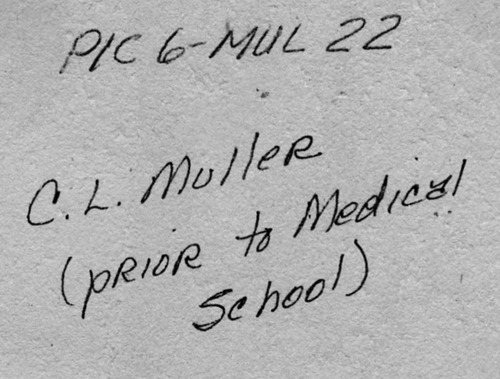 PIC 6-MUL 22
C. L. Muller
(PRIOR to Medical
School)